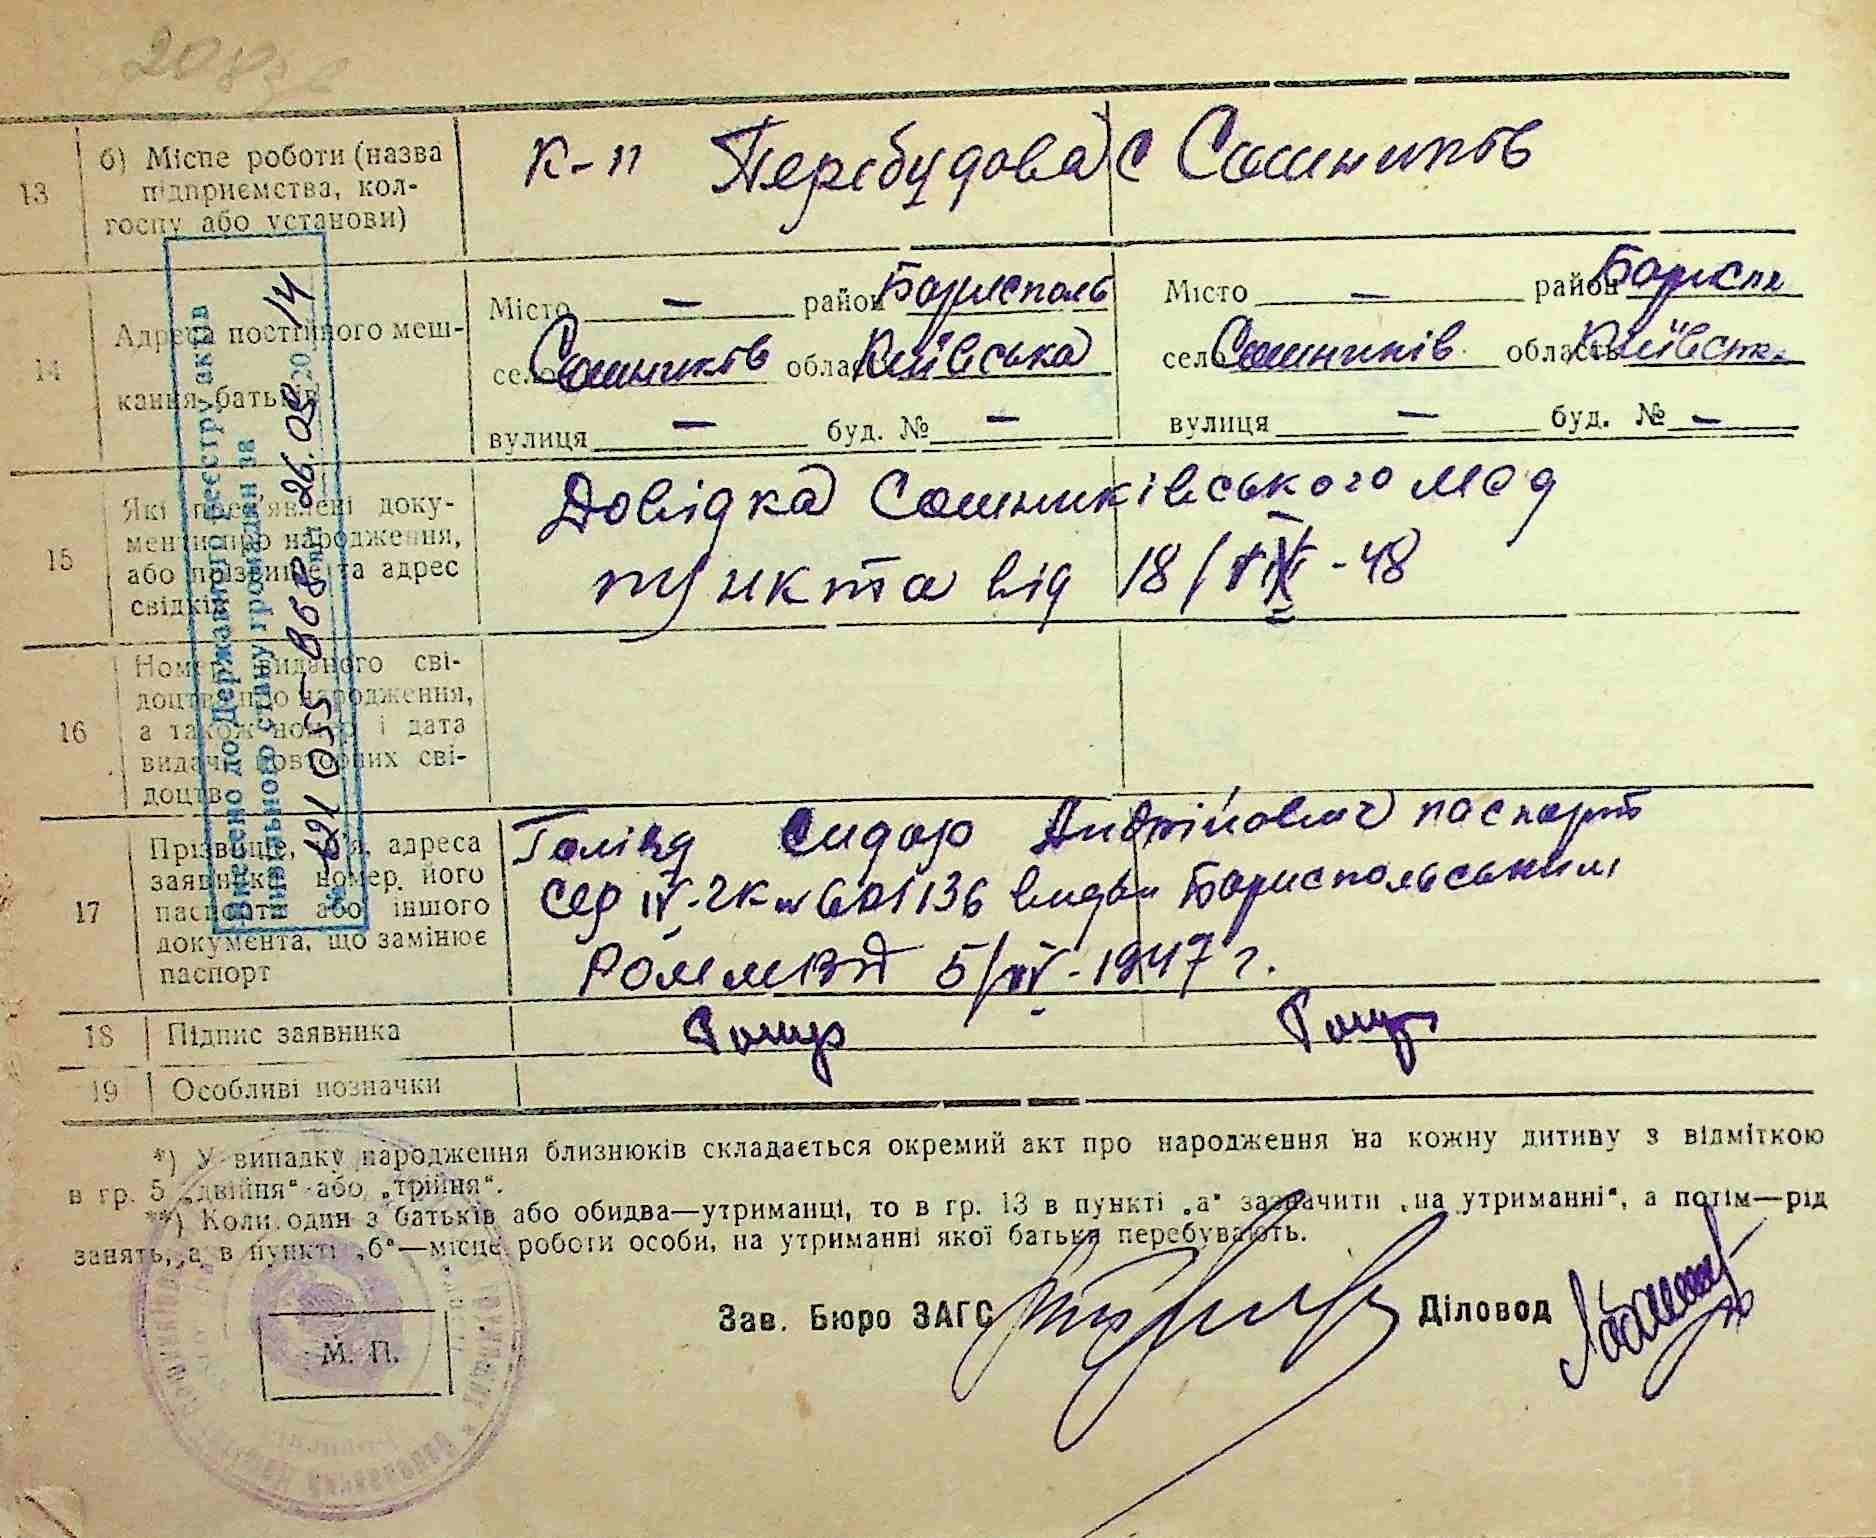 13
б) Місце роботи (назва
підприємства, кол-
госпу або установи)
к-п Перебудова с Сошників
14
Адреса постійного меш-
кання батьків
Місто — район Бориспіль
село Сошників область Київська
вулиця — буд. № —
Місто — район Бориспі
село Сошників область Київська
вулиця — буд. № —
15
Які пред'явлені доку-
менти про народження,
або прізвище та адрес
свідків
Довідка Сошниківського мед
пункта від 18/ІХ-48
16
Номер виданого сві-
доцтва про народження,
а також номер і дата
видачі повторних сві-
доцтв
17
Прізвище, ім'я, адреса
заявника, номер його
паспорта або іншого
документа, що замінює
паспорт
Сидор Андрійович паспорт
сер IV-ЧК № 601136 видан Бориспольським
5/IV-1947 г.
18
Підпис заявника
19
Особливі позначки
Внесено до Державного реєстру актів
цивільного стану громадян за
26.09 2014
*) У випадку народження близнюків складається окремий акт про народження на кожну дитину з відміткою
в гр. 5 „двійня“ або „трійня“.
**) Коли один з батьків або обидва—утриманці, то в гр. 13 в пункті „а“ зазначити „на утриманні“, а потім—рід
занять, а в пункті „б“—місце роботи особи, на утриманні якої батьки перебувають.
Зав. Бюро ЗАГС
Діловод
М. П.